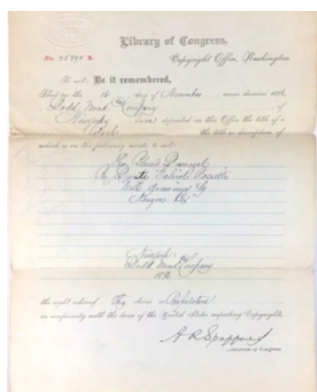 Library of Congress,
No. R. Copyright Office, Washington.
To wit: Be it remembered,
That on the 16 day of November anno domini 188
Dodd Mead & Company of
New York have deposited in this Office the title of a
the title or description of
which is in the following words, to wit:
The Blessed Damozel
By Dante Gabriel Rossetti
With drawings by
Kenyon Cox
New York
Dodd Mead & Company
188
the right whereof they claim as Proprietors
in conformity with the laws of the United States respecting Copyrights.
A. R. Spofford
Librarian of Congress